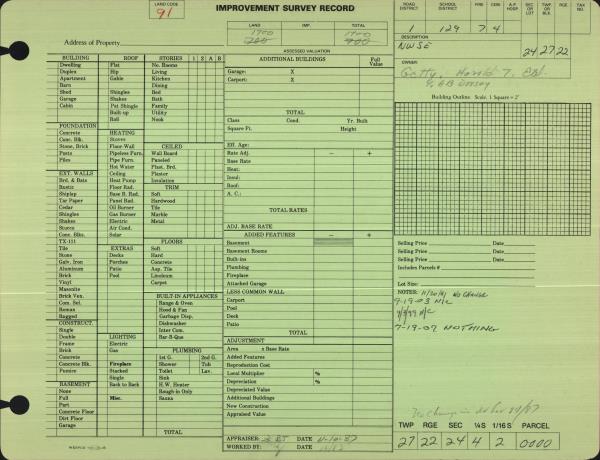 LAND CODE
91
IMPROVEMENT SURVEY RECORD
LAND IMP. TOTAL
1700 1700
200 900
ASSESSED VALUATION
Address of Property
ROAD DISTRICT SCHOOL DISTRICT FIRE CEM. A.P. HOSP. SEC OR LOT TWP OR BLK. RGE TAX NO.
1 129 7 4
DESCRIPTION
NWSE 24 27 22
OWNER
Getty, Harold T.
BUILDING ROOF STORIES 1 2 A B
Dwelling Flat No. Rooms
Duplex Hip Living
Apartment Gable Kitchen
Barn Dining
Shed Shingles Bed
Garage Shakes Bath
Cabin Pat. Shingle Family
Built-up Utility
Roll Nook
FOUNDATION
Concrete HEATING
Conc. Blk. Stoves CEILED
Stone, Brick Floor Wall Wall Board
Posts Pipeless Furn. Paneled
Piles Pipe Furn. Plast. Brd.
Hot Water Plaster
EXT. WALLS Ceiling Insulation
Brd. & Bats Heat Pump TRIM
Rustic Floor Rad. Soft
Shiplap Base B. Rad. Hardwood
Tar Paper Panel Rad. Tile
Cedar Oil Burner Marble
Shingles Gas Burner Metal
Shakes Electric
Stucco Air Cond.
Conc. Blks. Solar
TX-111 FLOORS
Tile EXTRAS Soft
Stone Decks Hard
Galv. Iron Porches Concrete
Aluminum Patio Asp. Tile
Brick Pool Linoleum
Vinyl Carpet
Masonite
Brick Ven. BUILT-IN APPLIANCES
Com. Bel. Range & Oven
Roman Hood & Fan
Rugged Garbage Disp.
CONSTRUCT. Dishwasher
Single Inter Com.
Double LIGHTING Bar-B-Que
Frame Electric
Brick Gas PLUMBING
Concrete 1st G. 2nd G.
Concrete Blk. Fireplace Shower Tub
Pumice Stacked Toilet Lav.
Single Sink
BASEMENT Back to Back H.W. Heater
Full Rough-in Only
Part Misc. Sauna
Concrete Floor
Dirt Floor
Garage TOTAL
ADDITIONAL BUILDINGS Full Value
Garage: X
Carport: X
TOTAL
Class Cond. Yr. Built
Square Ft. Height
Eff. Age:
Rate Adj. − +
Base Rate
Heat:
Insul:
Roof:
A. C.:
TOTAL RATES
ADJ. BASE RATE
ADDED FEATURES − +
Basement
Basement Rooms
Built-ins
Plumbing
Fireplace
Attached Garage
LESS COMMON WALL
Carport
Pool
Deck
Patio
TOTAL
ADJUSTMENT
Area x Base Rate
Added Features
Reproduction Cost
Local Multiplier %
Depreciation %
Depreciated Value
Additional Buildings
New Construction
Appraised Value
APPRAISER: DATE 11-10-87
WORKED BY: DATE
Building Outline Scale: 1 Square = 2'
Selling Price Date
Selling Price Date
Selling Price Date
Includes Parcels #
Lot Size:
NOTES: 11/20/91 NO CHANGE
9-19-03 N/C
7/3/99 N/C
7-19-07 NOTHING
No Change
TWP RGE SEC ¼S 1/16S PARCEL
27 22 24 4 2 0000